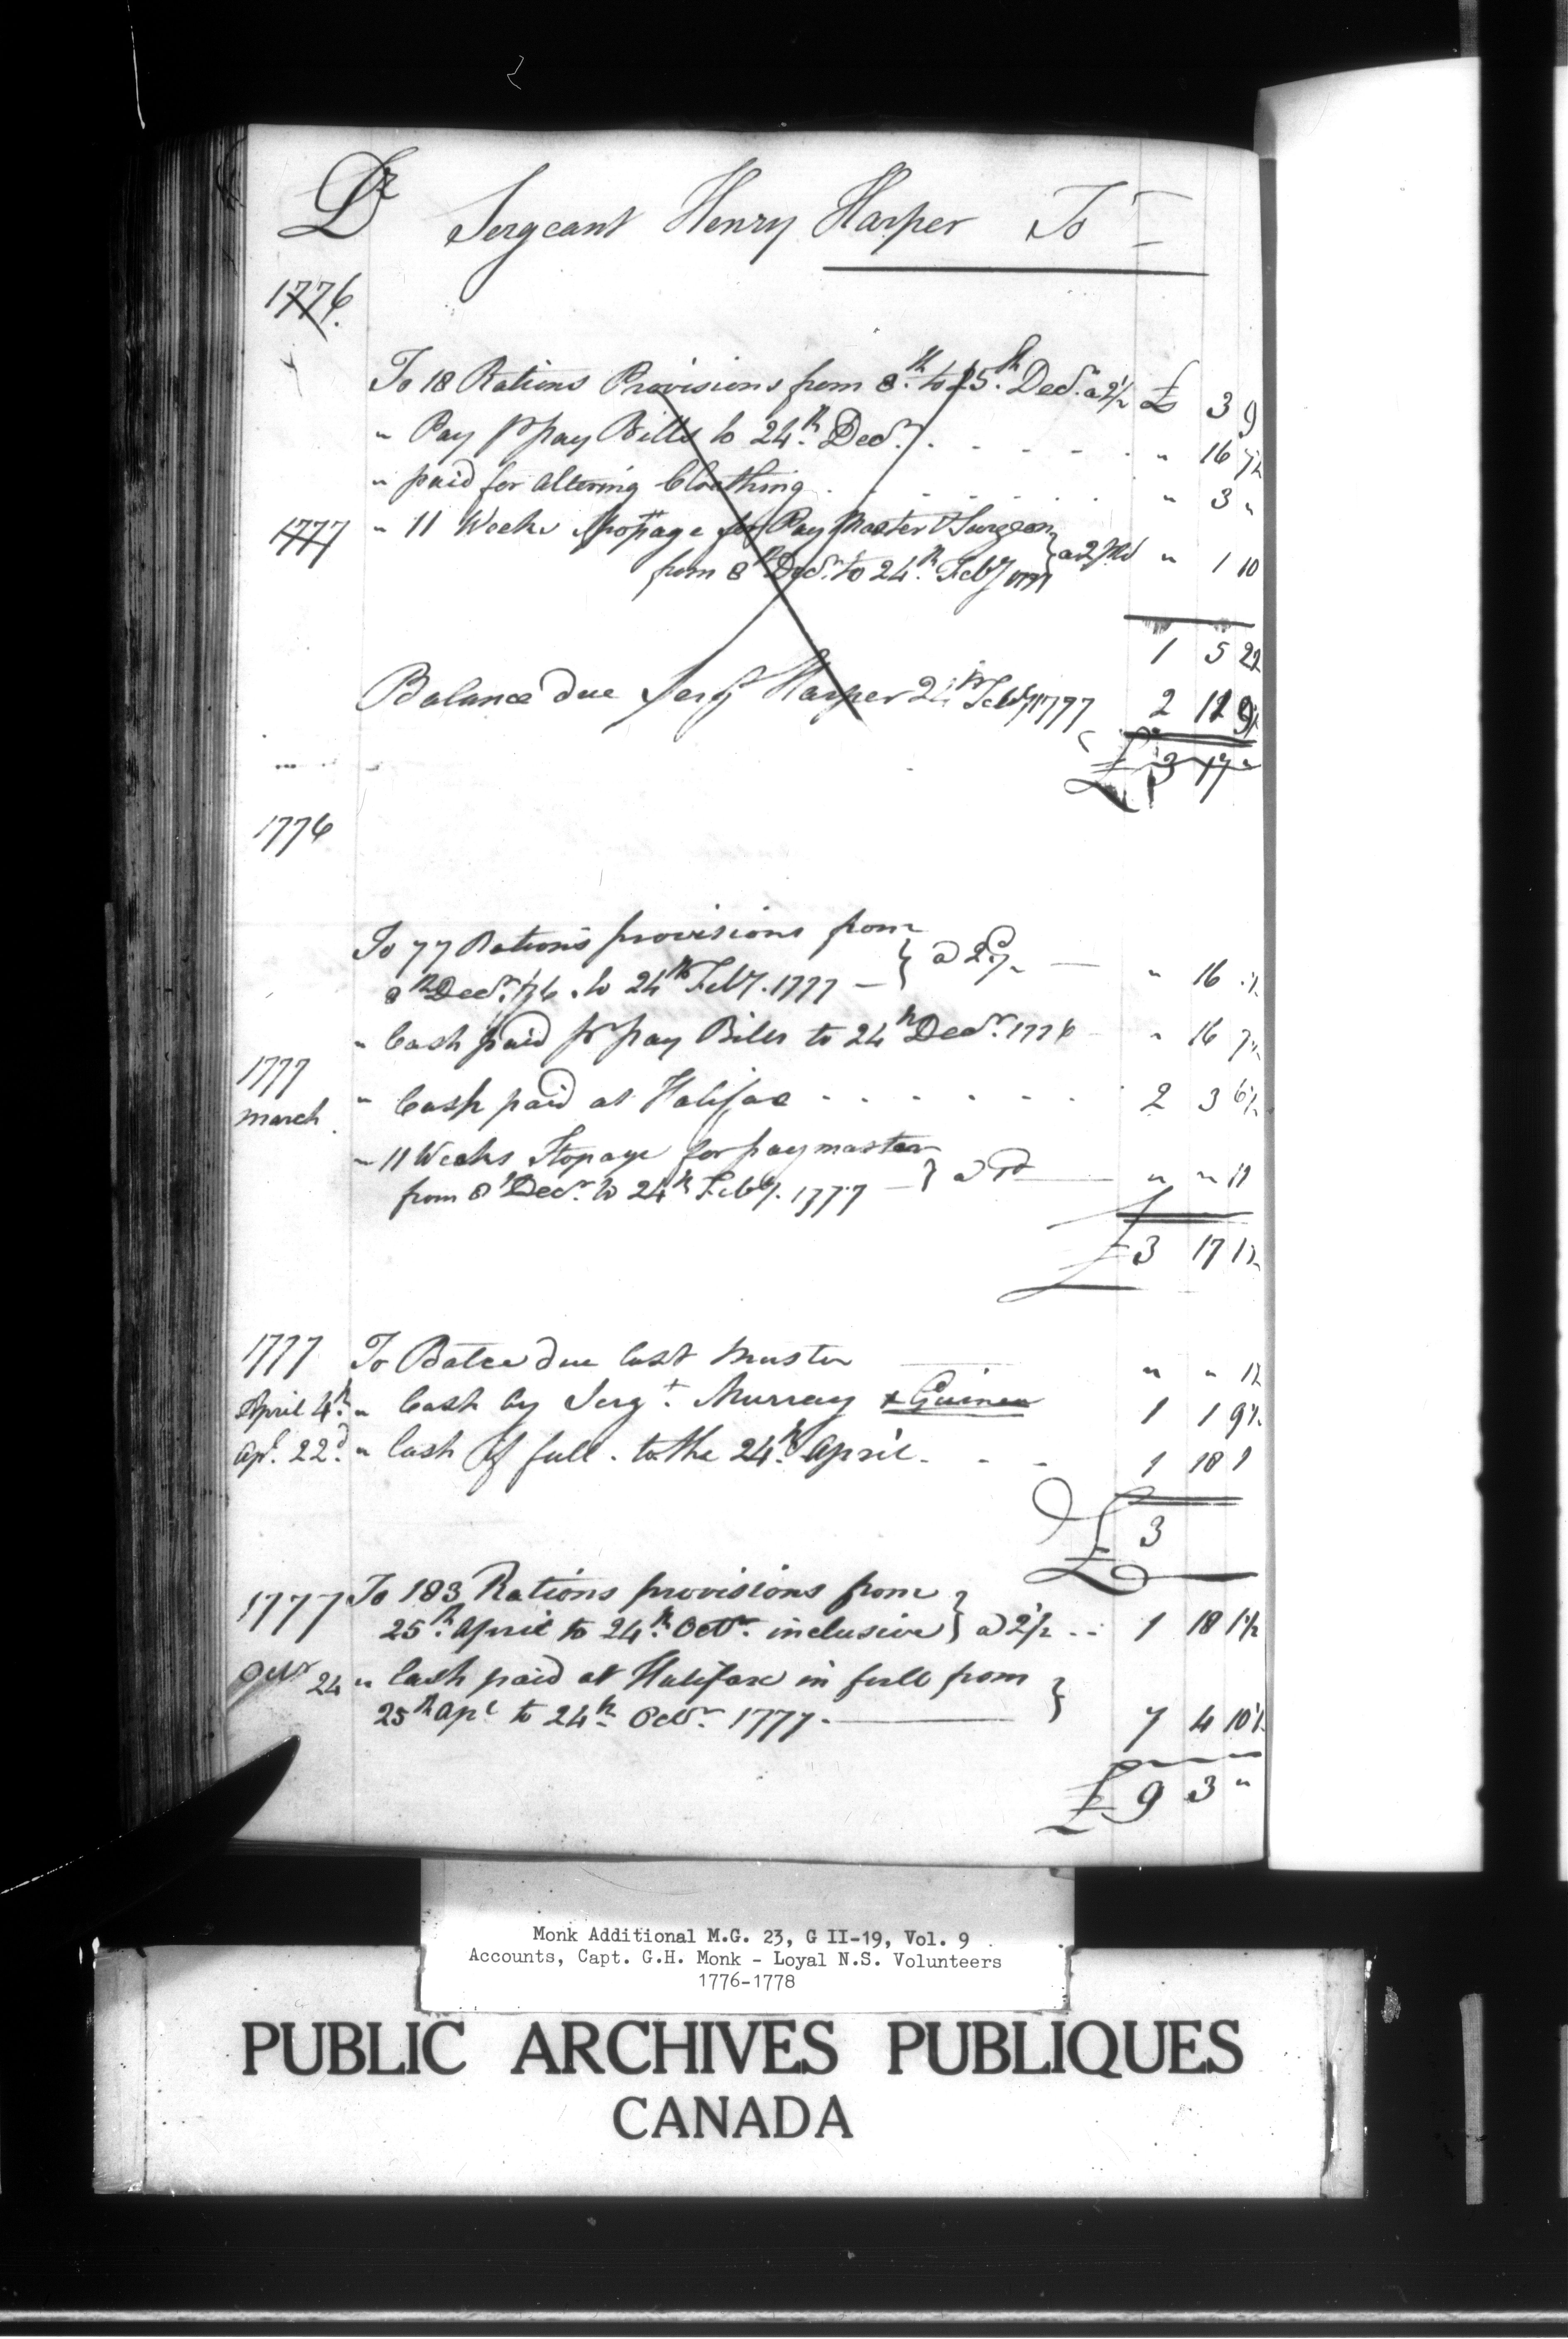 Dr Sergeant Henry Harper To
1776.
To 18 Rations Provisions from 8th to 25th Decr a 2½ £ 3 9
" Pay pr pay Bills to 24th Decr. " 16 7½
" paid for altering Cloathing " 3 "
1777 " 11 Weeks Stopage for Pay Master & Surgeon
from 8th Decr. to 24th Feby 1777 " 1 10
1 5 2½
Balance due Sergt Harper 24th Feby 1777 2 11 9½
£ 3 17 "
1776
To 77 Rations provisions from
8th Decr. 76. to 24th Feby. 1777 a 2½ " 16 ½
" Cash paid pr pay Bills to 24th Decr. 1776 " 16 7½
1777
March
" Cash paid at Halifax 2 3 6½
" 11 Weeks Stopage for paymaster
from 8th Decr. to 24th Feby. 1777 a 1d " " 11
£ 3 17 1½
1777 To Balce due last Muster " " 1½
April 4th. " Cash by Sergt. Murray Guinea 1 1 9½
Apl. 22d. " Cash full. to the 24th. April. 1 18 1
£ 3
1777 To 183 Rations provisions from
25th. April to 24th. Octr. inclusive a 2½ 1 18 1½
Octr 24 " Cash paid at Halifax in full from
25th Apl to 24th Octr. 1777. 7 4 10½
£ 9 3 "
Monk Additional M.G. 23, G II-19, Vol. 9
Accounts, Capt. G.H. Monk - Loyal N.S. Volunteers
1776-1778
PUBLIC ARCHIVES PUBLIQUES
CANADA